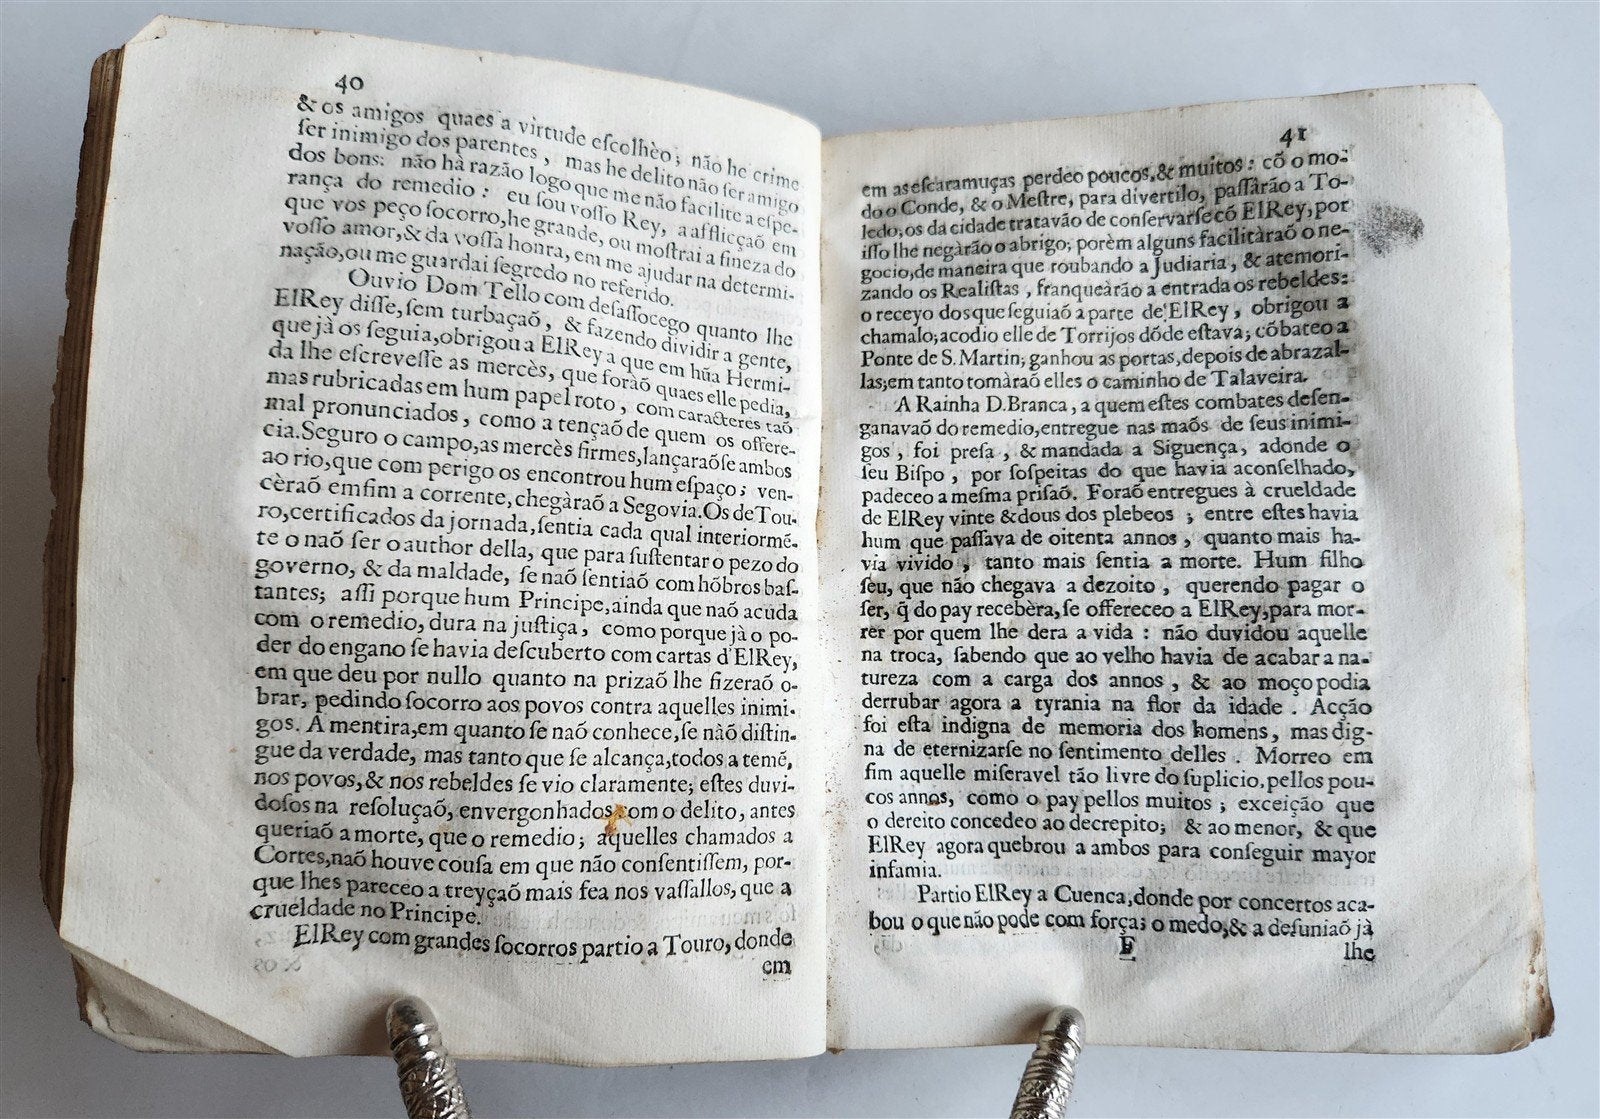 40
& os amigos quaes a virtude eſcolhèo; não he crime
ſer inimigo dos parentes, mas he delito não ſer amigo
dos bons: não hà razão logo que me não facilite a eſpe-
rança do remedio: eu ſou voſſo Rey, a afflicçaõ em
que vos peço ſocorro, he grande, ou moſtrai a fineza do
voſſo amor, & da voſſa honra, em me ajudar na determi-
nação, ou me guardai ſegredo no referido.
Ouvio Dom Tello com deſaſſocego quanto lhe
ElRey diſſe, ſem turbaçaõ, & fazendo dividir a gente,
que jà os ſeguia, obrigou a ElRey a que em hũa Hermi-
da lhe eſcreveſſe as mercès, que foraõ quaes elle pedia,
mas rubricadas em hum papel roto, com caracteres taõ
mal pronunciados, como a tençaõ de quem os offere-
cia. Seguro o campo, as mercès firmes, lançaraõſe ambos
ao rio, que com perigo os encontrou hum eſpaço; ven-
cèraõ emfim a corrente, chegàraõ a Segovia. Os de Tou-
ro, certificados da jornada, ſentia cada qual interiormẽ-
te o naõ ſer o author della, que para ſuſtentar o pezo do
governo, & da maldade, ſe naõ ſentiaõ com hõbros baſ-
tantes; aſſi porque hum Principe, ainda que naõ acuda
com o remedio, dura na juſtiça, como porque jà o po-
der do engano ſe havia deſcuberto com cartas d'ElRey,
em que deu por nullo quanto na prizaõ lhe fizeraõ o-
brar, pedindo ſocorro aos povos contra aquelles inimi-
gos. A mentira, em quanto ſe naõ conhece, ſe nàõ diſtin-
gue da verdade, mas tanto que ſe alcança, todos a temẽ,
nos povos, & nos rebeldes ſe vio claramente; eſtes duvi-
doſos na reſoluçaõ, envergonhados com o delito, antes
queriaõ a morte, que o remedio; aquelles chamados a
Cortes, naõ houve couſa em que não conſentiſſem, por-
que lhes pareceo a treyçaõ mais fea nos vaſſallos, que a
crueldade no Principe.
ElRey com grandes ſocorros partio a Touro, donde
em
41
em as eſcaramuças perdeo poucos, & muitos: cõ o mo-
do o Conde, & o Meſtre, para divertilo, paſſàrão a To-
ledo; os da cidade tratavão de conſervarſe cõ ElRey, por
iſſo lhe negàrão o abrigo; porèm alguns facilitàraõ o ne-
gocio, de maneira que roubando a Judiaria, & atemori-
zando os Realiſtas, franqueàrão a entrada os rebeldes:
o receyo dos que ſeguiaõ a parte de ElRey, obrigou a
chamalo; acodio elle de Torrijos dõde eſtava; cõbateo a
Ponte de S. Martin; ganhou as portas, depois de abrazal-
las; em tanto tomàraõ elles o caminho de Talaveira.
A Rainha D. Branca, a quem eſtes combates deſen-
ganavaõ do remedio, entregue nas maõs de ſeus inimi-
gos, foi preſa, & mandada a Siguença, adonde o
ſeu Biſpo, por ſoſpeitas do que havia aconſelhado,
padeceo a meſma priſaõ. Foraõ entregues à crueldade
de ElRey vinte & dous dos plebeos; entre eſtes havia
hum que paſſava de oitenta annos, quanto mais ha-
via vivido, tanto mais ſentia a morte. Hum filho
ſeu, que não chegava a dezoito, querendo pagar o
ſer, q̃ do pay recebèra, ſe offereceo a ElRey, para mor-
rer por quem lhe dera a vida: não duvidou aquelle
na troca, ſabendo que ao velho havia de acabar a na-
tureza com a carga dos annos, & ao moço podia
derrubar agora a tyrania na flor da idade. Acção
foi eſta indigna de memoria dos homens, mas dig-
na de eternizarſe no ſentimento delles. Morreo em
fim aquelle miſeravel tão livre do ſuplicio, pellos pou-
cos annos, como o pay pellos muitos; exceição que
o dereito concedeo ao decrepito; & ao menor, & que
ElRey agora quebrou a ambos para conſeguir mayor
infamia.
Partio ElRey a Cuenca, donde por concertos aca-
bou o que não pode com força; o medo, & a deſuniaõ jà
E
lhe